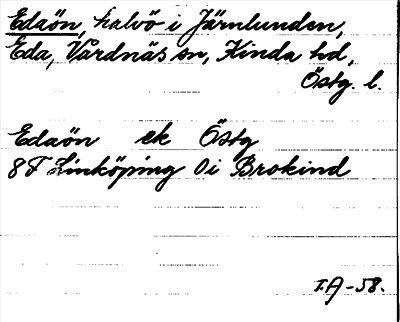 Edaön, halvö i Järnlunden,
Eda, Vårdnäs sn, Kinda hd,
Östg. l.
Edaön ek Östg
8F Linköping 0i Brokind
I.A-58.